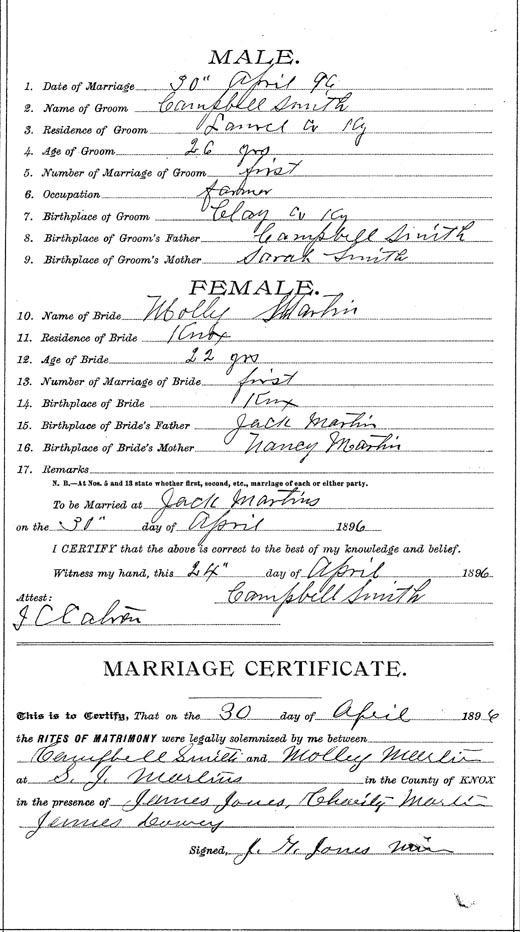 MALE.
1. Date of Marriage 30" April 96
2. Name of Groom Campbell Smith
3. Residence of Groom Laurel Co Ky
4. Age of Groom 26 yrs
5. Number of Marriage of Groom first
6. Occupation farmer
7. Birthplace of Groom Clay Co Ky
8. Birthplace of Groom's Father Campbell Smith
9. Birthplace of Groom's Mother Sarah Smith
FEMALE.
10. Name of Bride Molly Martin
11. Residence of Bride Knox
12. Age of Bride 22 yrs
13. Number of Marriage of Bride first
14. Birthplace of Bride Knx
15. Birthplace of Bride's Father Jack Martin
16. Birthplace of Bride's Mother Nancy Martin
17. Remarks
N. B.—At Nos. 5 and 13 state whether first, second, etc., marriage of each or either party.
To be Married at Jack Martins
on the 30" day of April 1896
I CERTIFY that the above is correct to the best of my knowledge and belief.
Witness my hand, this 24" day of April 1896
Attest: Campbell Smith
MARRIAGE CERTIFICATE.
This is to Certify, That on the 30 day of April 1896
the RITES OF MATRIMONY were legally solemnized by me between
Campbell Smith and Molley Martin
at S. J. Martins in the County of KNOX
in the presence of James Jones, Charity Martin
James
Signed, J. G. Jones